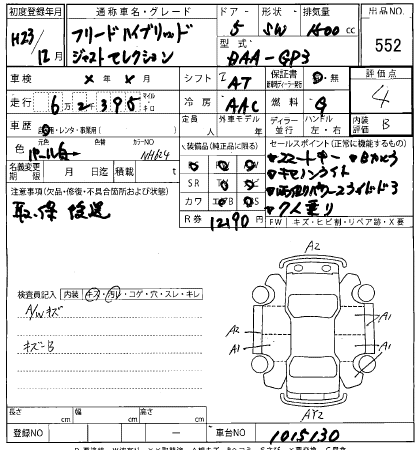 初度登録年月 通称車名・グレード ドア 形状 排気量 出品NO
H23/12月 フリードハイブリッド ジャストセレクション 5 SW 1500cc 552
型式 DAA-GP3
車検 × 年 × 月 シフト AT 保証書 有・無 評価点 4
走行 6万2395 マイル キロ 冷房 AAC 燃料 G 内装評価 B
車歴 自・レンタ・事業用( ) 定員 人 外車モデル 年 ディーラー・並行 ハンドル 左・右
色 パール白 カラーNO NH624
装備品(純正品に限る) セールスポイント(正常に機能するもの)
名義変更期限 月 日迄 積載量 t
・スマートキー ・Bカメラ
・キセノンライト
・両側パワースライドドア
・7人乗り
注意事項(欠品・修復・不具合箇所および状態) SR
カワ
取、保 後送
R券 12190円
FW キズ・ヒビ割・リペア跡・X要
検査員記入 内装 キズ・汚レ・コゲ・穴・スレ・キレ
A/Wキズ
キズ-B
A2
A2 A1
A1 A1
AY2
長さ cm 幅 cm 高さ cm
登録NO 車台NO 1015130